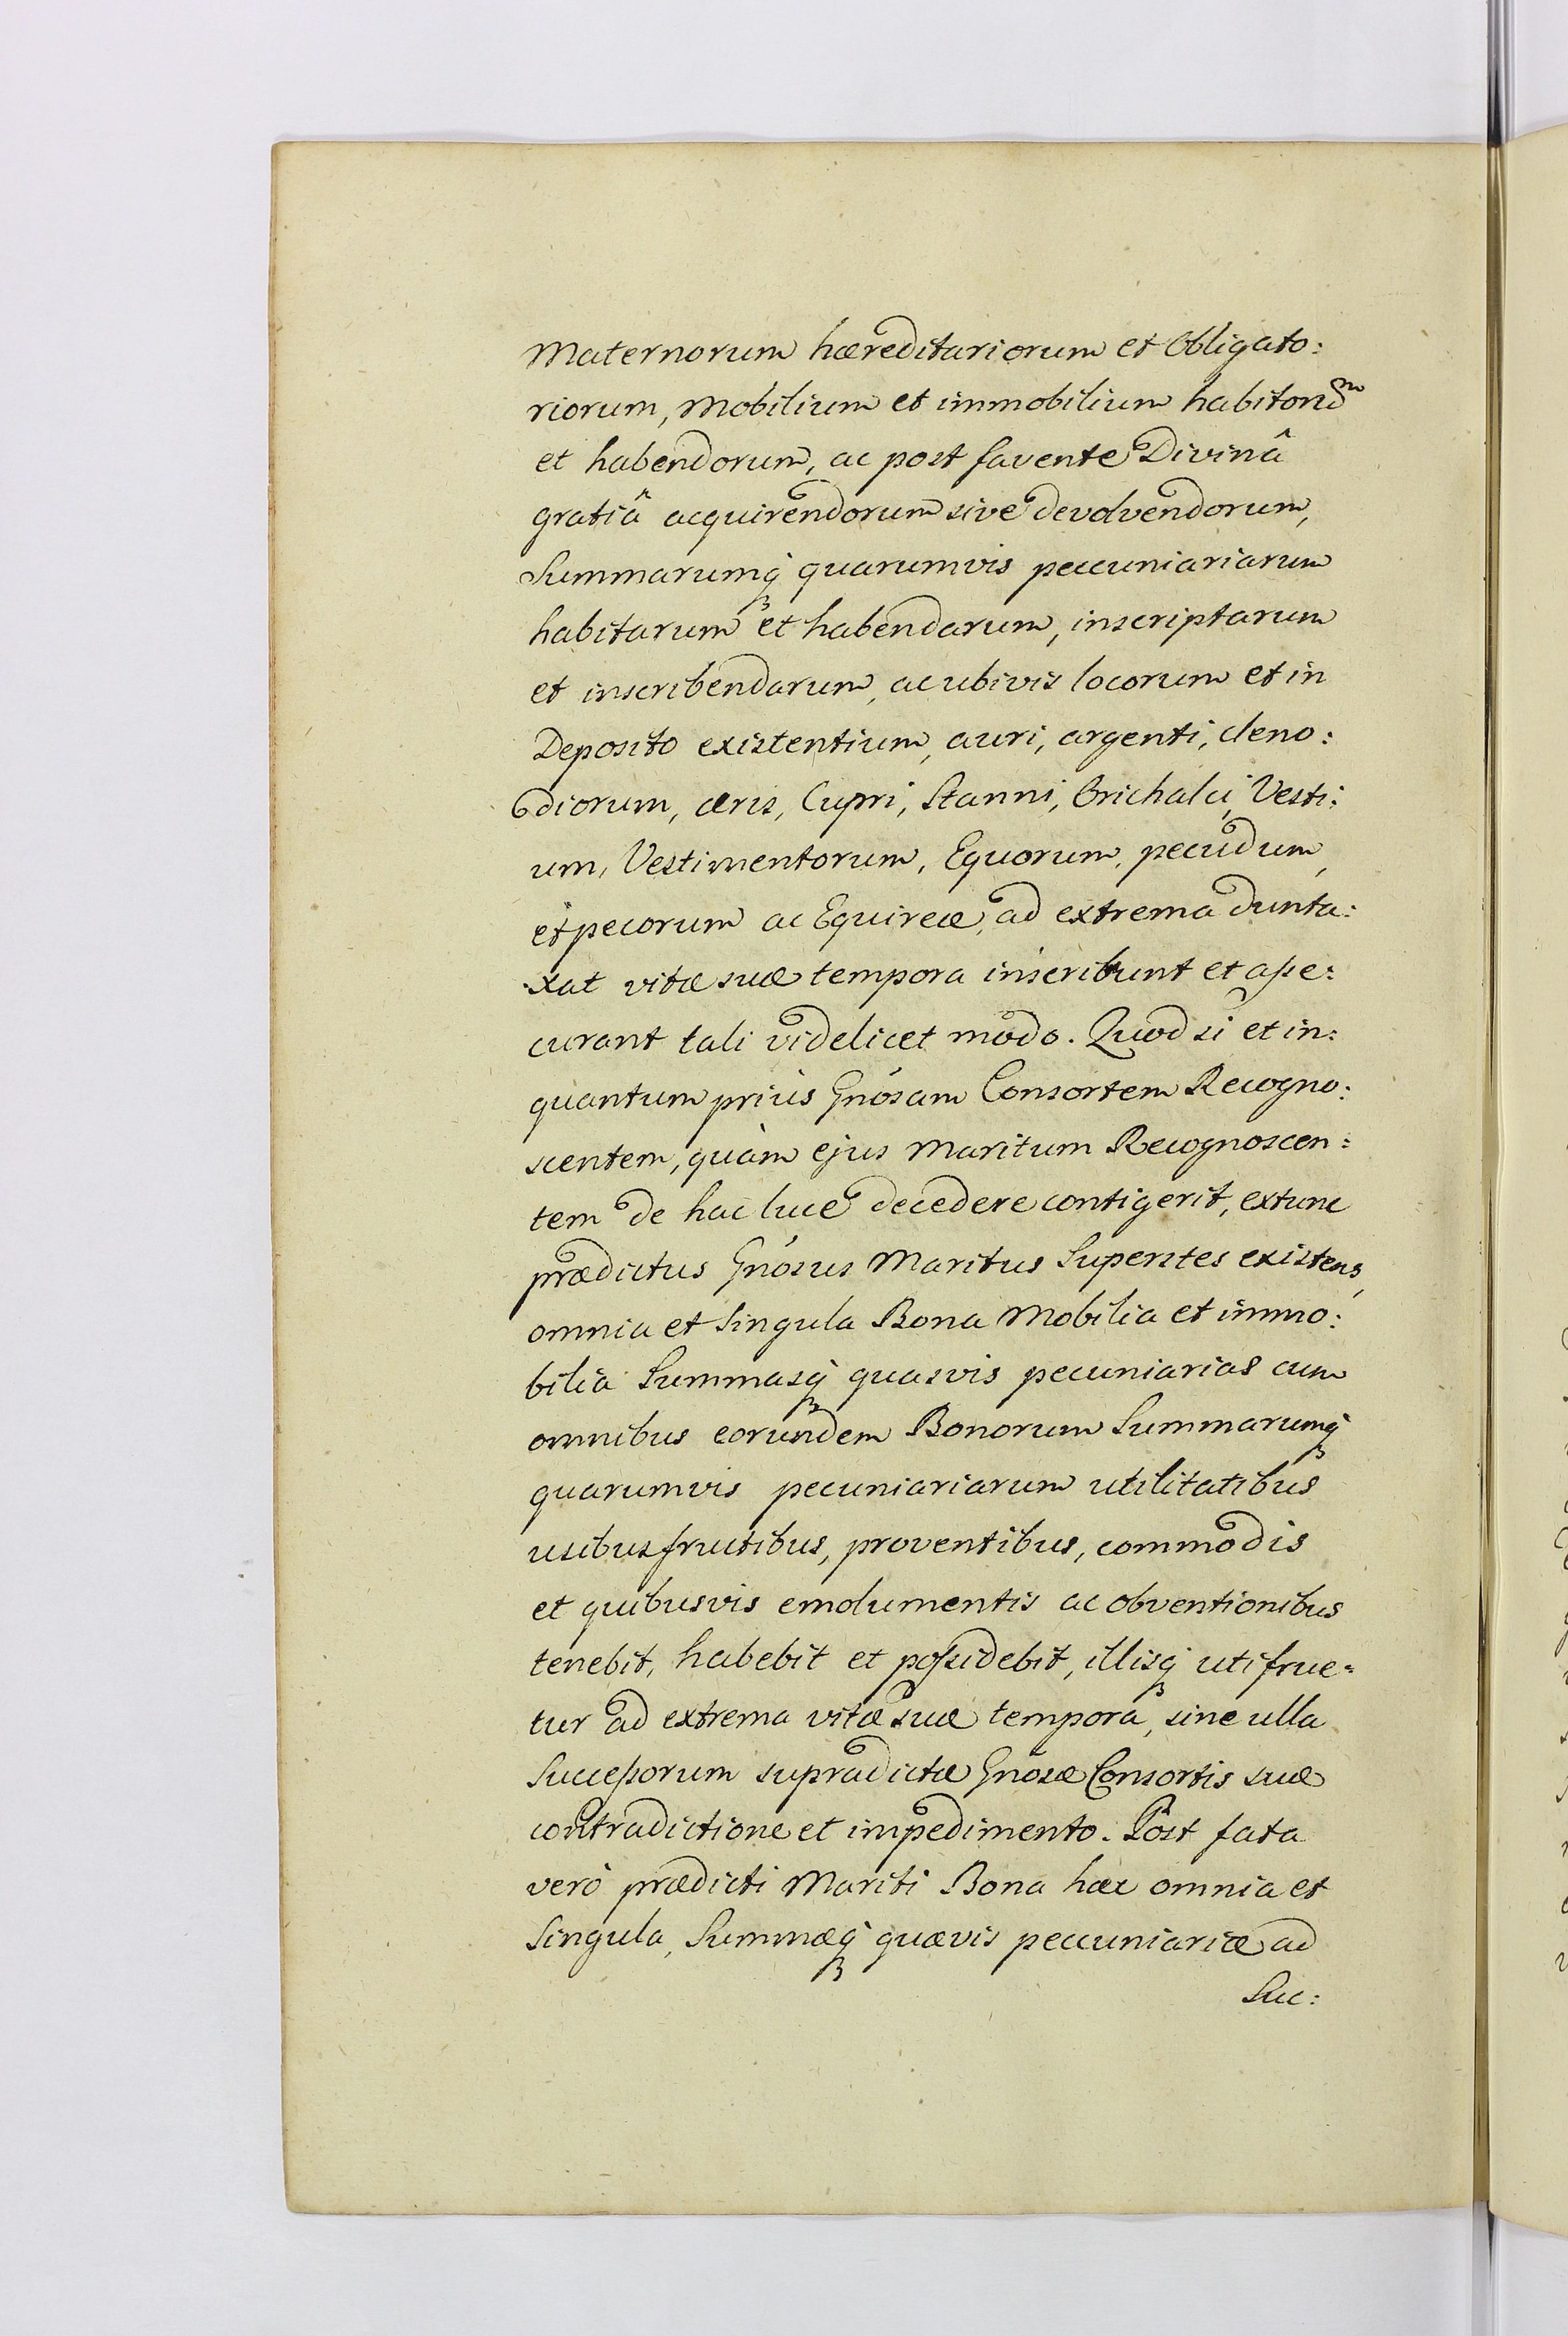 Maternorum hæreditariorum et Obligato:
riorum, Mobilium et immobilium habitoru̅m
et habendorum, ac post favente Divinâ
gratiâ acquirendorum sive devolvendorum,
Summarumq́ꝫ quarumvis peccuniariarum
habitarum et habendarum, inscriptarum
et inscribendarum, ac ubivis locorum et in
Deposito existentium, auri, argenti, cleno:
diorum, æris, Cupri, Stanni, Orichalci, Vesti:
um, Vestimentorum, Equorum, pecudum,
et pecorum ac Equireæ, ad extrema dunta:
xat vitæ suæ tempora inscribunt et asse:
curant tali videlicet modo. Quod si et in:
quantum prius Gnósam Consortem Recogno:
scentem, quàm ejus Maritum Recognoscen:
tem de hac luce decedere contigerit, extunc
prædictus Gnósus Maritus Superstes existens,
omnia et Singula Bona Mobilia et immo:
bilia Summasq́ꝫ quasvis pecuniarias cum
omnibus eorundem Bonorum Summarumq́ꝫ
quarumvis pecuniariarum utilitatibus
usibusfructibus, proventibus, commodis
et quibusvis emolumentis ac obventionibus
tenebit, habebit et possidebit, illisq́ꝫ utifrue=
tur ad extrema vitæ suæ tempora, sine ulla
Successorum supradictæ Gnósæ Consortis suæ
contradictione et impedimento. Post fata
verò prædicti Mariti Bona hæc omnia et
Singula, Summæq́ꝫ quævis peccuniariæ ad
Suc: